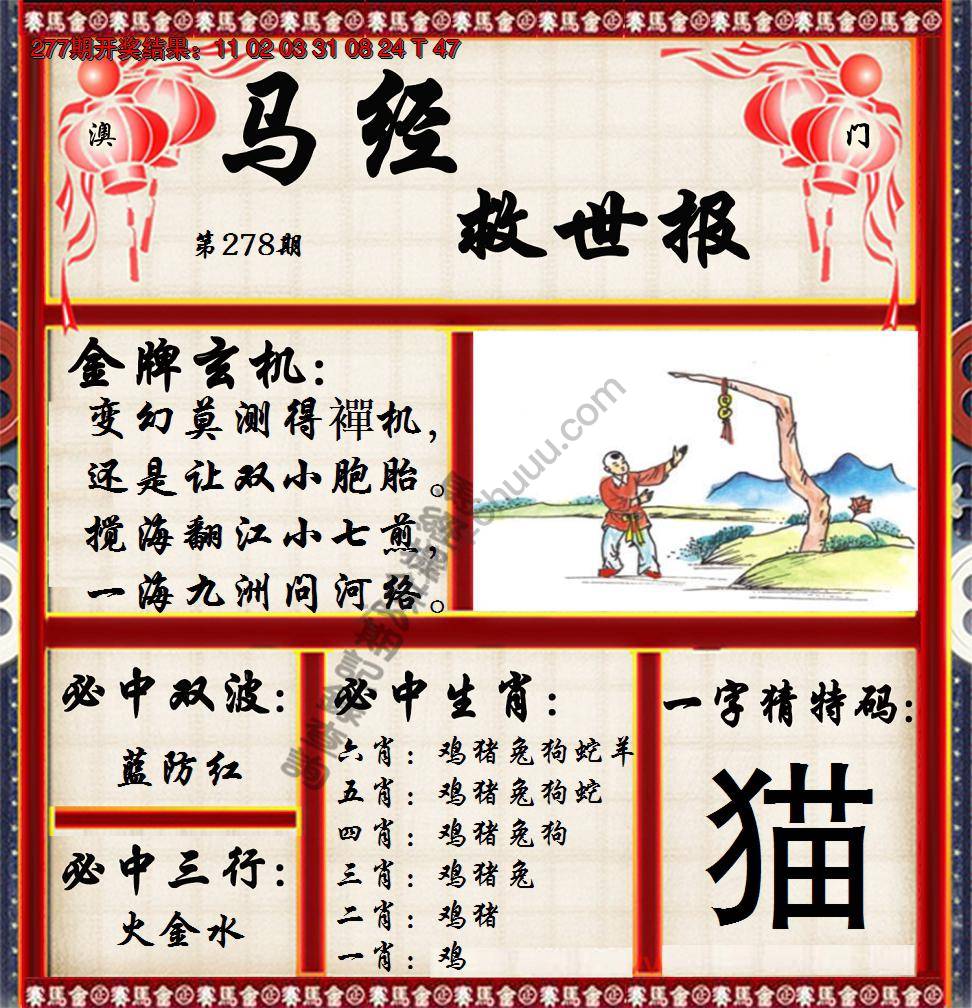 277期开奖结果：11 02 03 31 08 24 T 47
澳
门
马经
救世报
第278期
金牌玄机：
变幻莫测得襌机，
还是让双小胞胎。
搅海翻江小七煎，
一海九洲问河络。
必中双波：
蓝防红
必中三行：
火金水
必中生肖：
六肖：鸡猪兔狗蛇羊
五肖：鸡猪兔狗蛇
四肖：鸡猪兔狗
三肖：鸡猪兔
二肖：鸡猪
一肖：鸡
一字猜特码：
猫